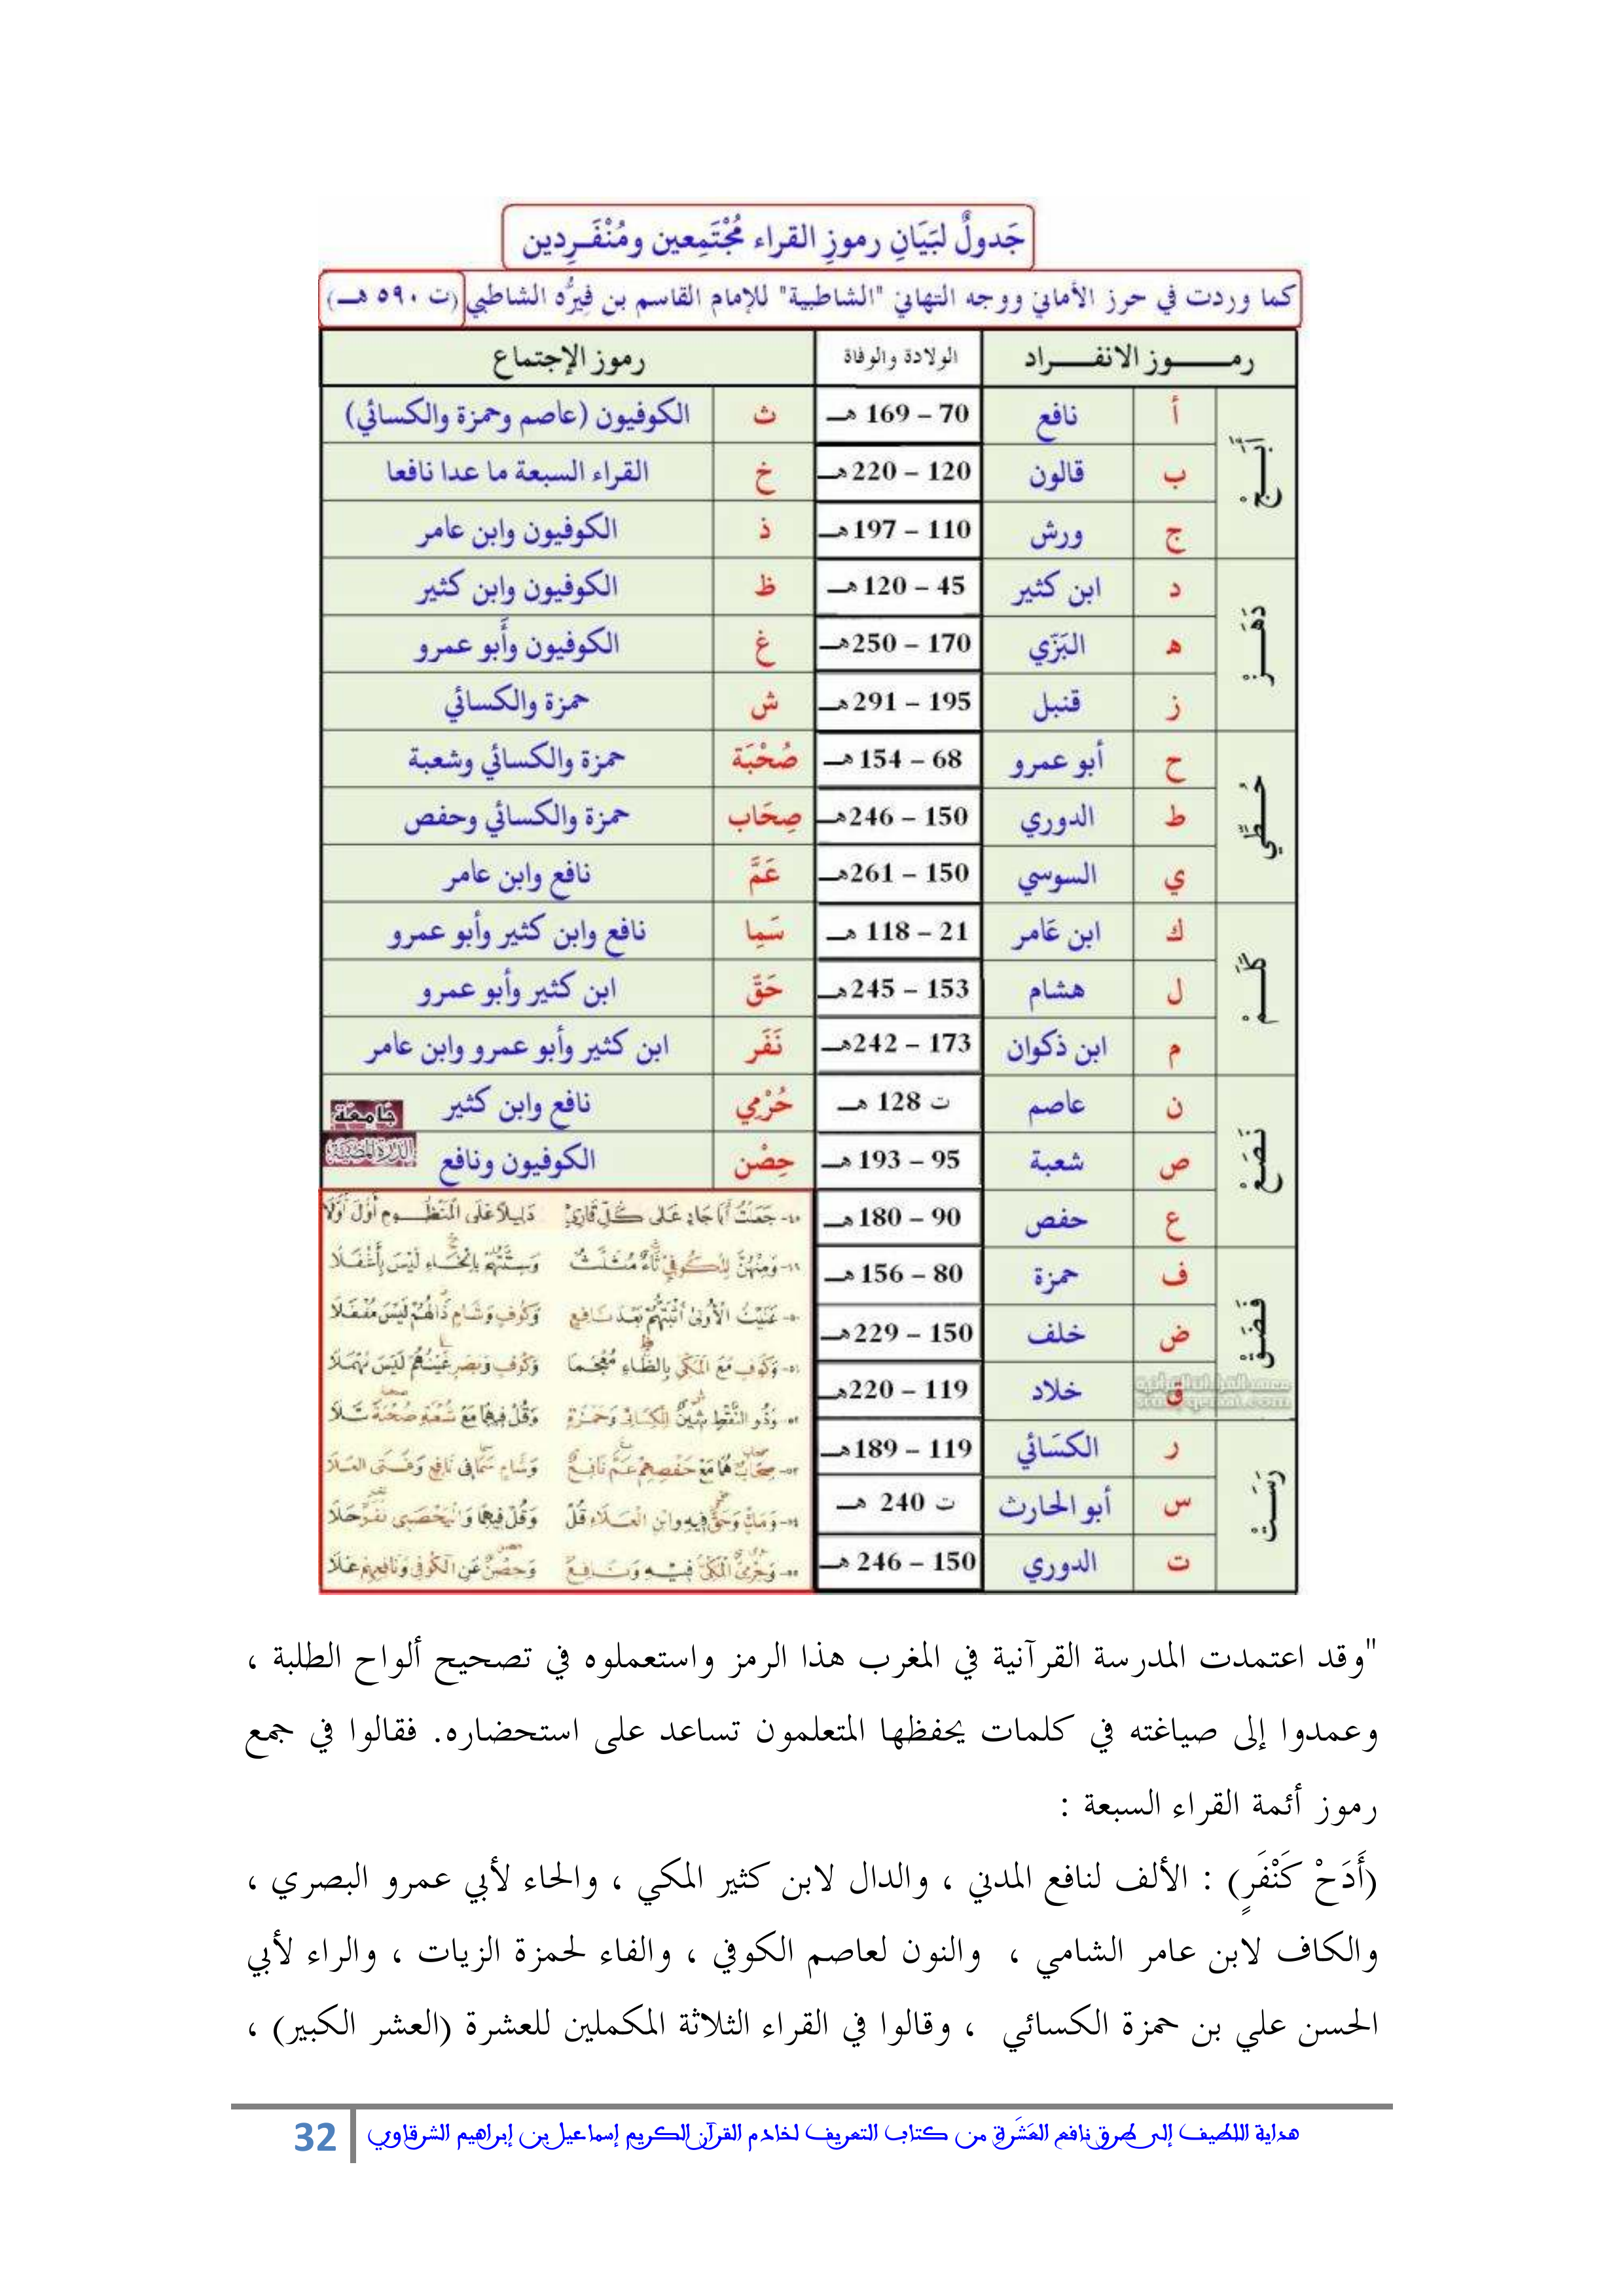 جَدولٌ لبَيَانِ رموزِ القراء مُجْتَمِعين ومُنْفَـرِدين
كما وردت في حرز الأماني ووجه التهاني "الشاطبية" للإمام القاسم بن فِيرُّه الشاطبي (ت ٥٩٠ هـ)
رمـــــوز الانفــــراد الولادة والوفاة رموز الإجتماع
أبَجْ
أ نافع 70 – 169 هـ ث الكوفيون (عاصم وحمزة والكسائي)
ب قالون 120 – 220هـ خ القراء السبعة ما عدا نافعا
ج ورش 110 – 197هـ ذ الكوفيون وابن عامر
دَهَـزْ
د ابن كثير 45 – 120هـ ظ الكوفيون وابن كثير
ه البَزّي 170 – 250هـ غ الكوفيون وأَبو عمرو
ز قنبل 195 – 291هـ ش حمزة والكسائي
حُـطِّي
ح أبو عمرو 68 – 154هـ صُحْبَة حمزة والكسائي وشعبة
ط الدوري 150 – 246هـ صِحَاب حمزة والكسائي وحفص
ي السوسي 150 – 261هـ عَمَّ نافع وابن عامر
كَلَـمْ
ك ابن عَامر 21 – 118 هـ سَمِا نافع وابن كثير وأبو عمرو
ل هشام 153 – 245هـ حَقّ ابن كثير وأبو عمرو
م ابن ذكوان 173 – 242هـ نَفَر ابن كثير وأبو عمرو وابن عامر
نَصَـعْ
ن عاصم ت 128 هـ حُرْمِي نافع وابن كثير
جَامعَة
الدُّرَة المُضيَّة
ص شعبة 95 – 193هـ حِصْن الكوفيون ونافع
ع حفص 90 – 180هـ
فَضَـقْ
ف حمزة 80 – 156هـ
ض خلف 150 – 229هـ
ق خلاد 119 – 220هـ
رَسَـتْ
ر الكسَائي 119 – 189هـ
س أبو الحارث ت 240 هـ
ت الدوري 150 – 246 هـ
جَعَلْتُ أَبَا جَادٍ عَلَى كُلِّ قَارِئٍ دَلِيلًا عَلَى الْمَنْظُومِ أَوَّلَ أَوَّلَا
وَمِنْهُنَّ لِلْكُوفِيِّ ثَاءٌ مُثَلَّثٌ وَسِتَّتُهُمْ بِالْخَاءِ لَيْسَ بِأَغْفَلَا
عَنَيْتُ الْأُولَى أَثْبَتُّهُمْ بَعْدَ نَافِعٍ وَكُوفٍ وَشَامٍ ذَالُهُمْ لَيْسَ مُغْفَلَا
وَكُوفٍ مَعَ الْمَكِّيِّ بِالظَّاءِ مُعْجَمًا وَكُوفٍ وَبَصْرٍ غَيْنُهُمْ لَيْسَ مُهْمَلَا
وَذُو النَّقْطِ شِينٌ لِلْكِسَائِي وَحَمْزَةٍ وَقُلْ فِيهِمَا مَعْ شُعْبَةٍ صُحْبَةٌ تَلَا
صِحَابٌ هُمَا مَعْ حَفْصِهِمْ عَمَّ نَافِعٌ وَشَامٍ سَمَا فِي نَافِعٍ وَفَتَى الْعَلَا
وَمَكٍّ وَحَقٌّ فِيهِ وَابْنِ الْعَلَاءِ قُلْ وَقُلْ فِيهِمَا وَالْيَحْصَبِي نَفَرٌ حَلَا
وَحِرْمِيٌّ الْمَكِّيُّ فِيهِ وَنَافِعٌ وَحِصْنٌ عَنِ الْكُوفِي وَنَافِعِهِمْ عَلَا
"وقد اعتمدت المدرسة القرآنية في المغرب هذا الرمز واستعملوه في تصحيح ألواح الطلبة ،
وعمدوا إلى صياغته في كلمات يحفظها المتعلمون تساعد على استحضاره. فقالوا في جمع
رموز أئمة القراء السبعة :
(أَدَحْ كَنْفَرٍ) : الألف لنافع المدني ، والدال لابن كثير المكي ، والحاء لأبي عمرو البصري ،
والكاف لابن عامر الشامي ، والنون لعاصم الكوفي ، والفاء لحمزة الزيات ، والراء لأبي
الحسن علي بن حمزة الكسائي ، وقالوا في القراء الثلاثة المكملين للعشرة (العشر الكبير) ،
هداية اللطيف إلى طرق نافع العَشَرة من كتاب التعريف لخادم القرآن الكريم إسماعيل بن إبراهيم الشرقاوي 32